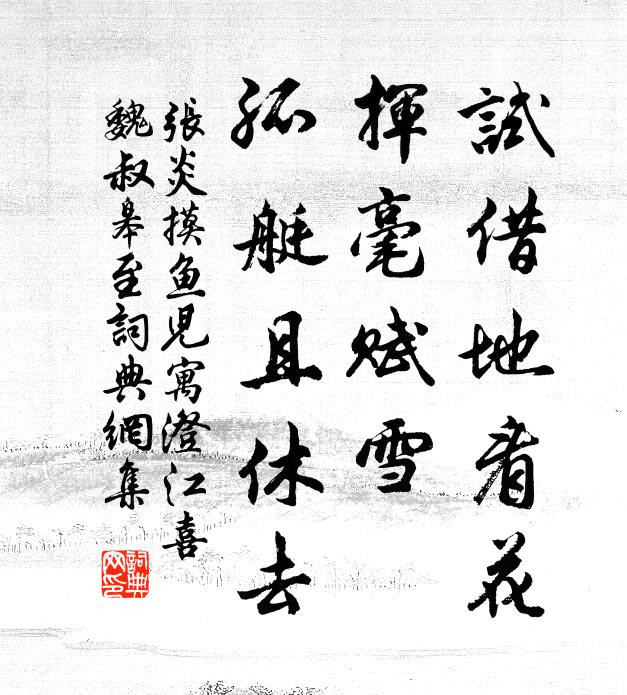 試借地看花
揮毫賦雪
孤艇且休去
張炎摸魚児寓澄江喜
魏叔皋至詞典網集
詞典
网印